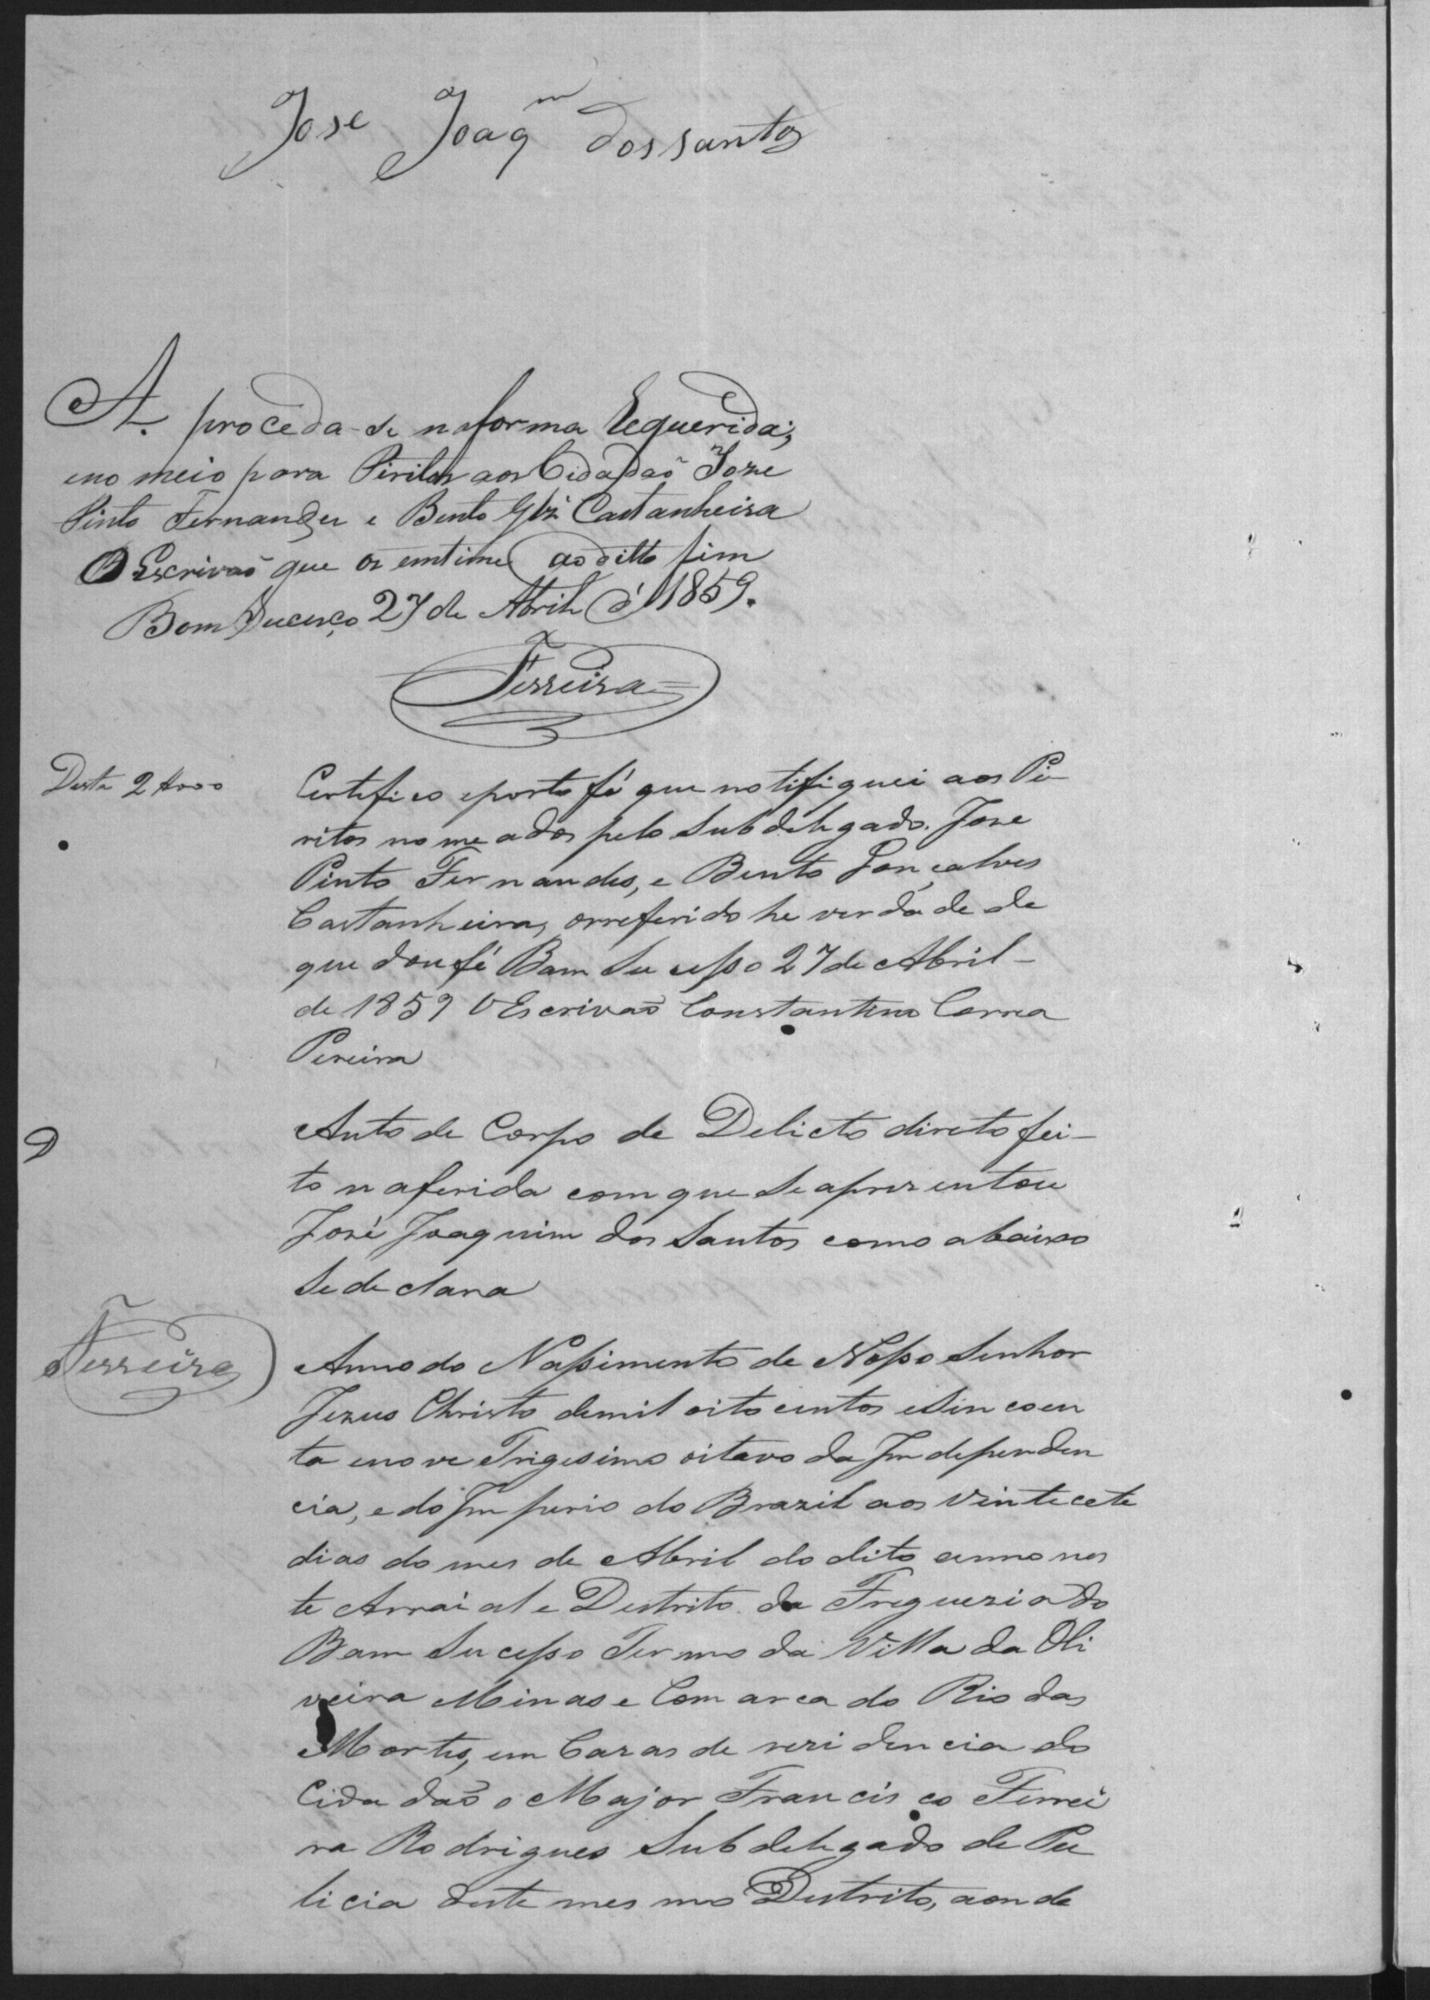 Jose Joaqm dos santos
A. proceda-se na forma Requerida;
eno meio para Piritos aos Cidadaõ Joze
Pinto Fernandes e Bento Glz Castanheira
O Escrivaõ que os emtime ao ditto fim
Bom Sucerço 27 de Abril d' 1859.
Ferreira
Desta 2$000
Certefico eporto fé que notifiquei aos Pi-
ritos nomeados pelo Subdelegado. Jose
Pinto Fernandes, e Bento Gonçalves
Castanheira, orreferido he verdade de
que dou fé Bom Sucesso 27 de Abril-
de 1859 O Escrivaõ Constantino Correa
Pereira
Auto de Corpo de Delicto direto fei-
to na ferida com que se aprezentou
José Joaquim dos Santos como abaixo
Se declara
Ferreira
Anno do Nassimento de Nosso Senhor
Jezus Christo demil oito centos e Sincoen
ta enove Trigesimo oitavo da Independen
cia, e do Imperio do Brazil aos Vinte cete
dias do mes de Abril do dito anno nes
te Arraial e Destrito da Freguezia do
Bom Sucesso Termo da Villa da Oli
veira Minas e Comarca do Rio das
Mortes, em Cazas de rezidencia do
Cidadaõ o Major Francisco Ferrei
ra Rodrigues Subdelegado de Pu
licia deste mesmo Destrito, aonde